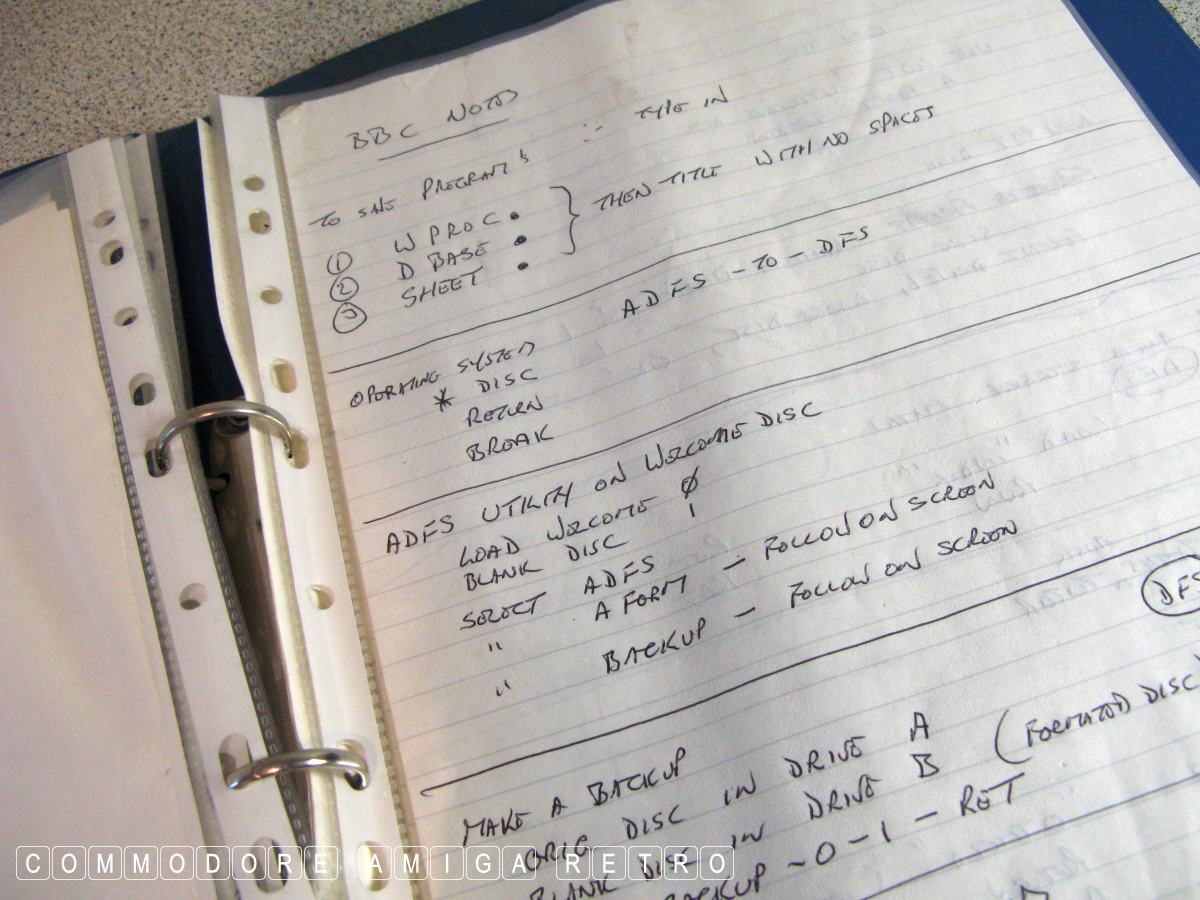 BBC NOTES
TO SAVE PROGRAM'S :- TYPE IN
① W PROC. } THEN TITLE WITH NO SPACES
② D BASE.
③ SHEET.
ADFS - TO - DFS
OPERATING SYSTEM
* DISC
RETURN
BREAK
ADFS UTILITY ON WELCOME DISC
LOAD WELCOME Ø
BLANK DISC 1
SELECT ADFS
" A FORM - FOLLOW ON SCREEN
" BACKUP - FOLLOW ON SCREEN
DFS
MAKE A BACKUP
ORIG DISC IN DRIVE A
BLANK DISC IN DRIVE B (FORMATED DISC
BACKUP - 0 - 1 - RET
COMMODORE AMIGA RETRO